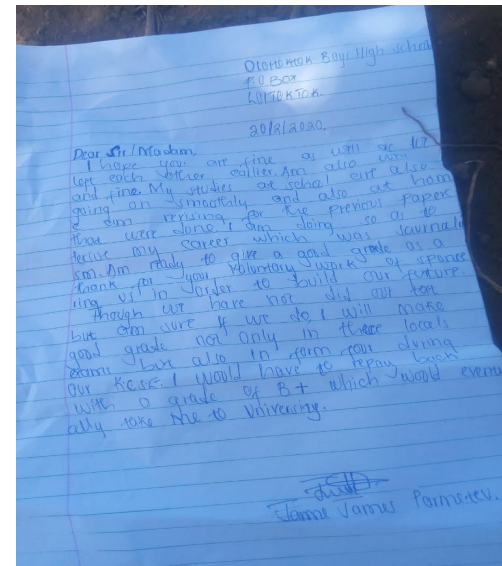 Oloitoktok Boys High school
P.O Box
LOITOKTOK.
20/2/2020.
Dear Sir/Madam.
I hope you are fine as well as we
left each other earlier. Am also very
and fine. My studies at school are also
going on smoothly and also at hom
e am revising for the previous paper
that were done. I am doing so as to
my career which was Journali
sm. Am ready to give a good grade as a
thank for your voluntary work of sponso
ring us in order to build our future.
Though we have not did our
but am sure if we do, I will make
good grade not only in these locals
exams but also in form four during
our K.C.S.E. I would have to repay back
with a grade of B+ which would eventu
ally take me to University.
James